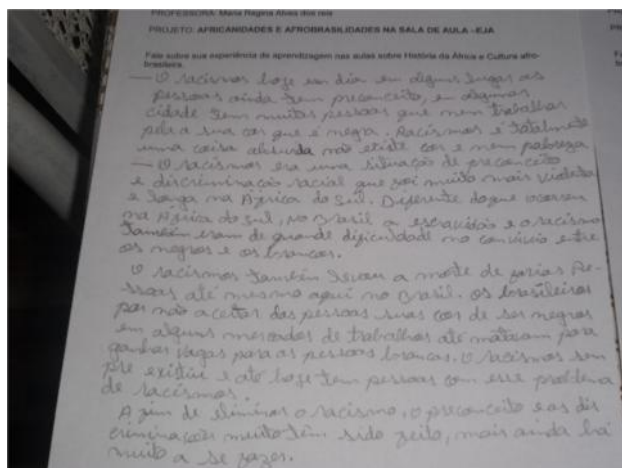 PROFESSORA: Maria Regina Alves dos reis
PROJETO: AFRICANIDADES E AFROBRASILIDADES NA SALA DE AULA - EJA
Fale sobre sua experiência de aprendizagem nas aulas sobre História da África e Cultura afro-
brasileira.
— O racismos hoje em dia em alguns lugar as
pessoas ainda tem preconceito, em algumas
cidade tem muitas pessoas que nem trabalhar
pela a sua cor que é negra. Racismos é totalmente
uma coisa absurda não existe cor e nem pobreza
— O racismos era uma situação de preconceito
e discriminação racial que foi muito mais violenta
e longa na África do Sul. Diferente do que ocorreu
na África do Sul, no Brasil a escravidão e o racismo
também eram de grande dificuldade no convívio entre
os negros e os brancos.
O racismos também levou a morte de varias Pe-
ssoas até mesmo aqui no Brasil. os brasileiros
por não aceitar das pessoas suas cor de ser negros
em alguns mercados de trabalhos até matavam para
ganhar vagas para as pessoas brancas. O racismos sem
pre existiu e até hoje tem pessoas com esse problema
de racismos.
A fim de eliminar o racismo, o preconceito e as dis
criminações muito têm sido feito, mais ainda há
muito a se fazer.